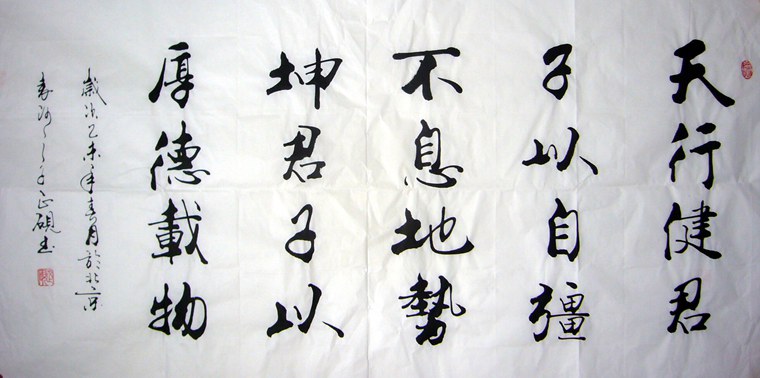 天行健君
子以自彊
不息地勢
坤君子以
厚德載物
歲次乙未年春月於北
之子正硯書